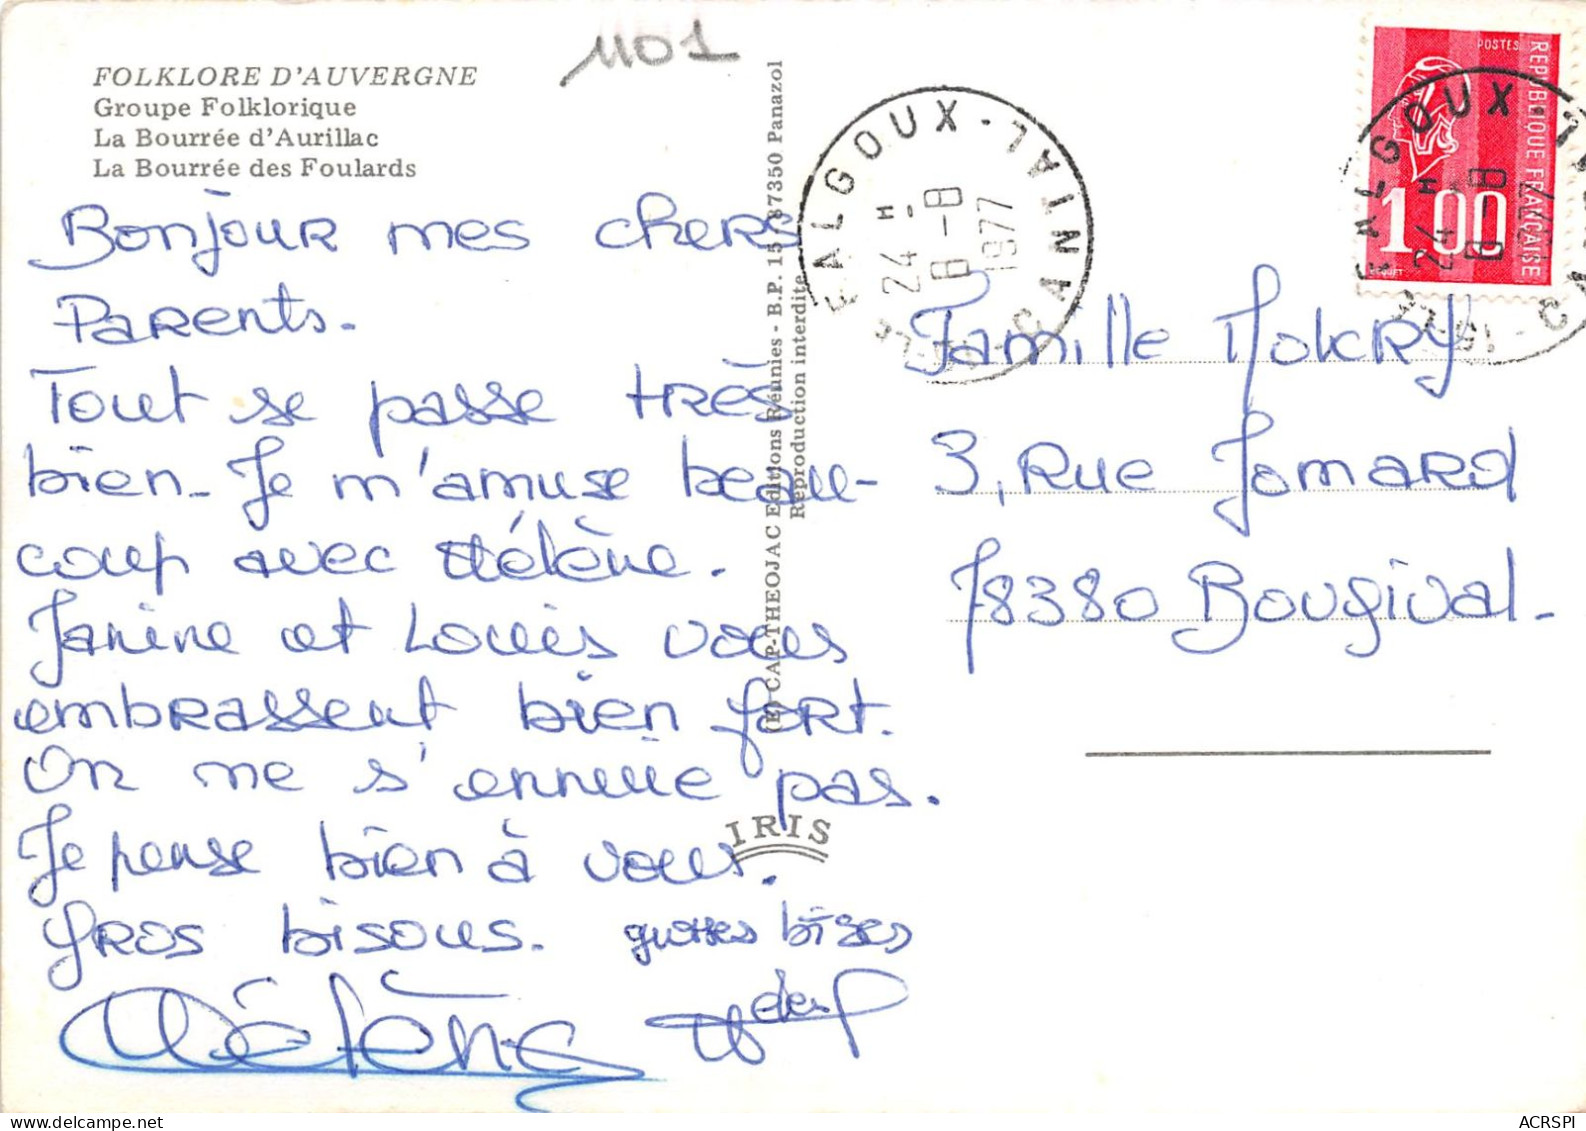 1101
FOLKLORE D'AUVERGNE
Groupe Folklorique
La Bourrée d'Aurillac
La Bourrée des Foulards
Bonjour mes chers
Parents.
Tout se passe très
bien. Je m'amuse beau-
coup avec Hélène.
Janine et Louis vous
embrassent bien fort.
On ne s'ennuie pas.
Je pense bien à vous.
Gros bisous. grosses bises
Hélène
(E) CAP-THEOJAC Editions Réunies - B.P. 15 / 87350 Panazol
Reproduction interdite
IRIS
FALGOUX - CANTAL
24 H
8-8
1977
POSTES
REPUBLIQUE FRANÇAISE
1,00
FALGOUX
24 H
8-8
Famille Mokry
3, Rue Jomard
78380 Bougival.
delcampe.net
ACRSPI